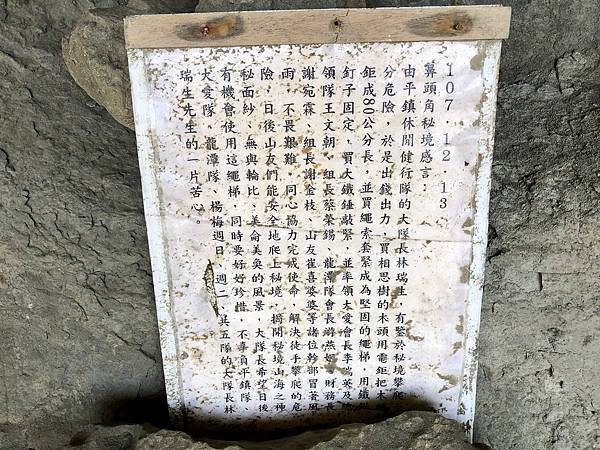 107.12.13
鼻頭角秘境感言：
由平鎮休閒健行隊的大隊長林瑞生，有鑒於秘境攀爬
分危險，於是出錢出力，買相思樹的木頭用電鋸把木
鋸成80公分長，並買繩索套緊成為堅固的繩梯，用鐵
釘子固定，買大鐵錘敲緊，並率領大愛會長李瑞英及
領隊王文朝、組長蔡榮錫、龍潭隊會長游燕 財務長
謝宛霖、組長謝金枝、山友崔喜婆婆等諸位幹部冒著風
雨，不畏艱難，同心協力完成使命，解決徒手攀爬的危
險，日後山友們能安全地爬上秘境，揭開秘境山海之種
秘面紗、無與輪比、美侖美奐的風景，大隊長希望日後
有機會使用這繩梯，同時要好好珍惜，不辜負平鎮隊、
大愛隊、龍潭隊、楊梅週日、週二，共五隊的大隊長林
瑞生先生的一片苦心。